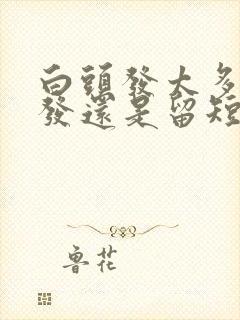 白頭發太多
發還是留短
魯花